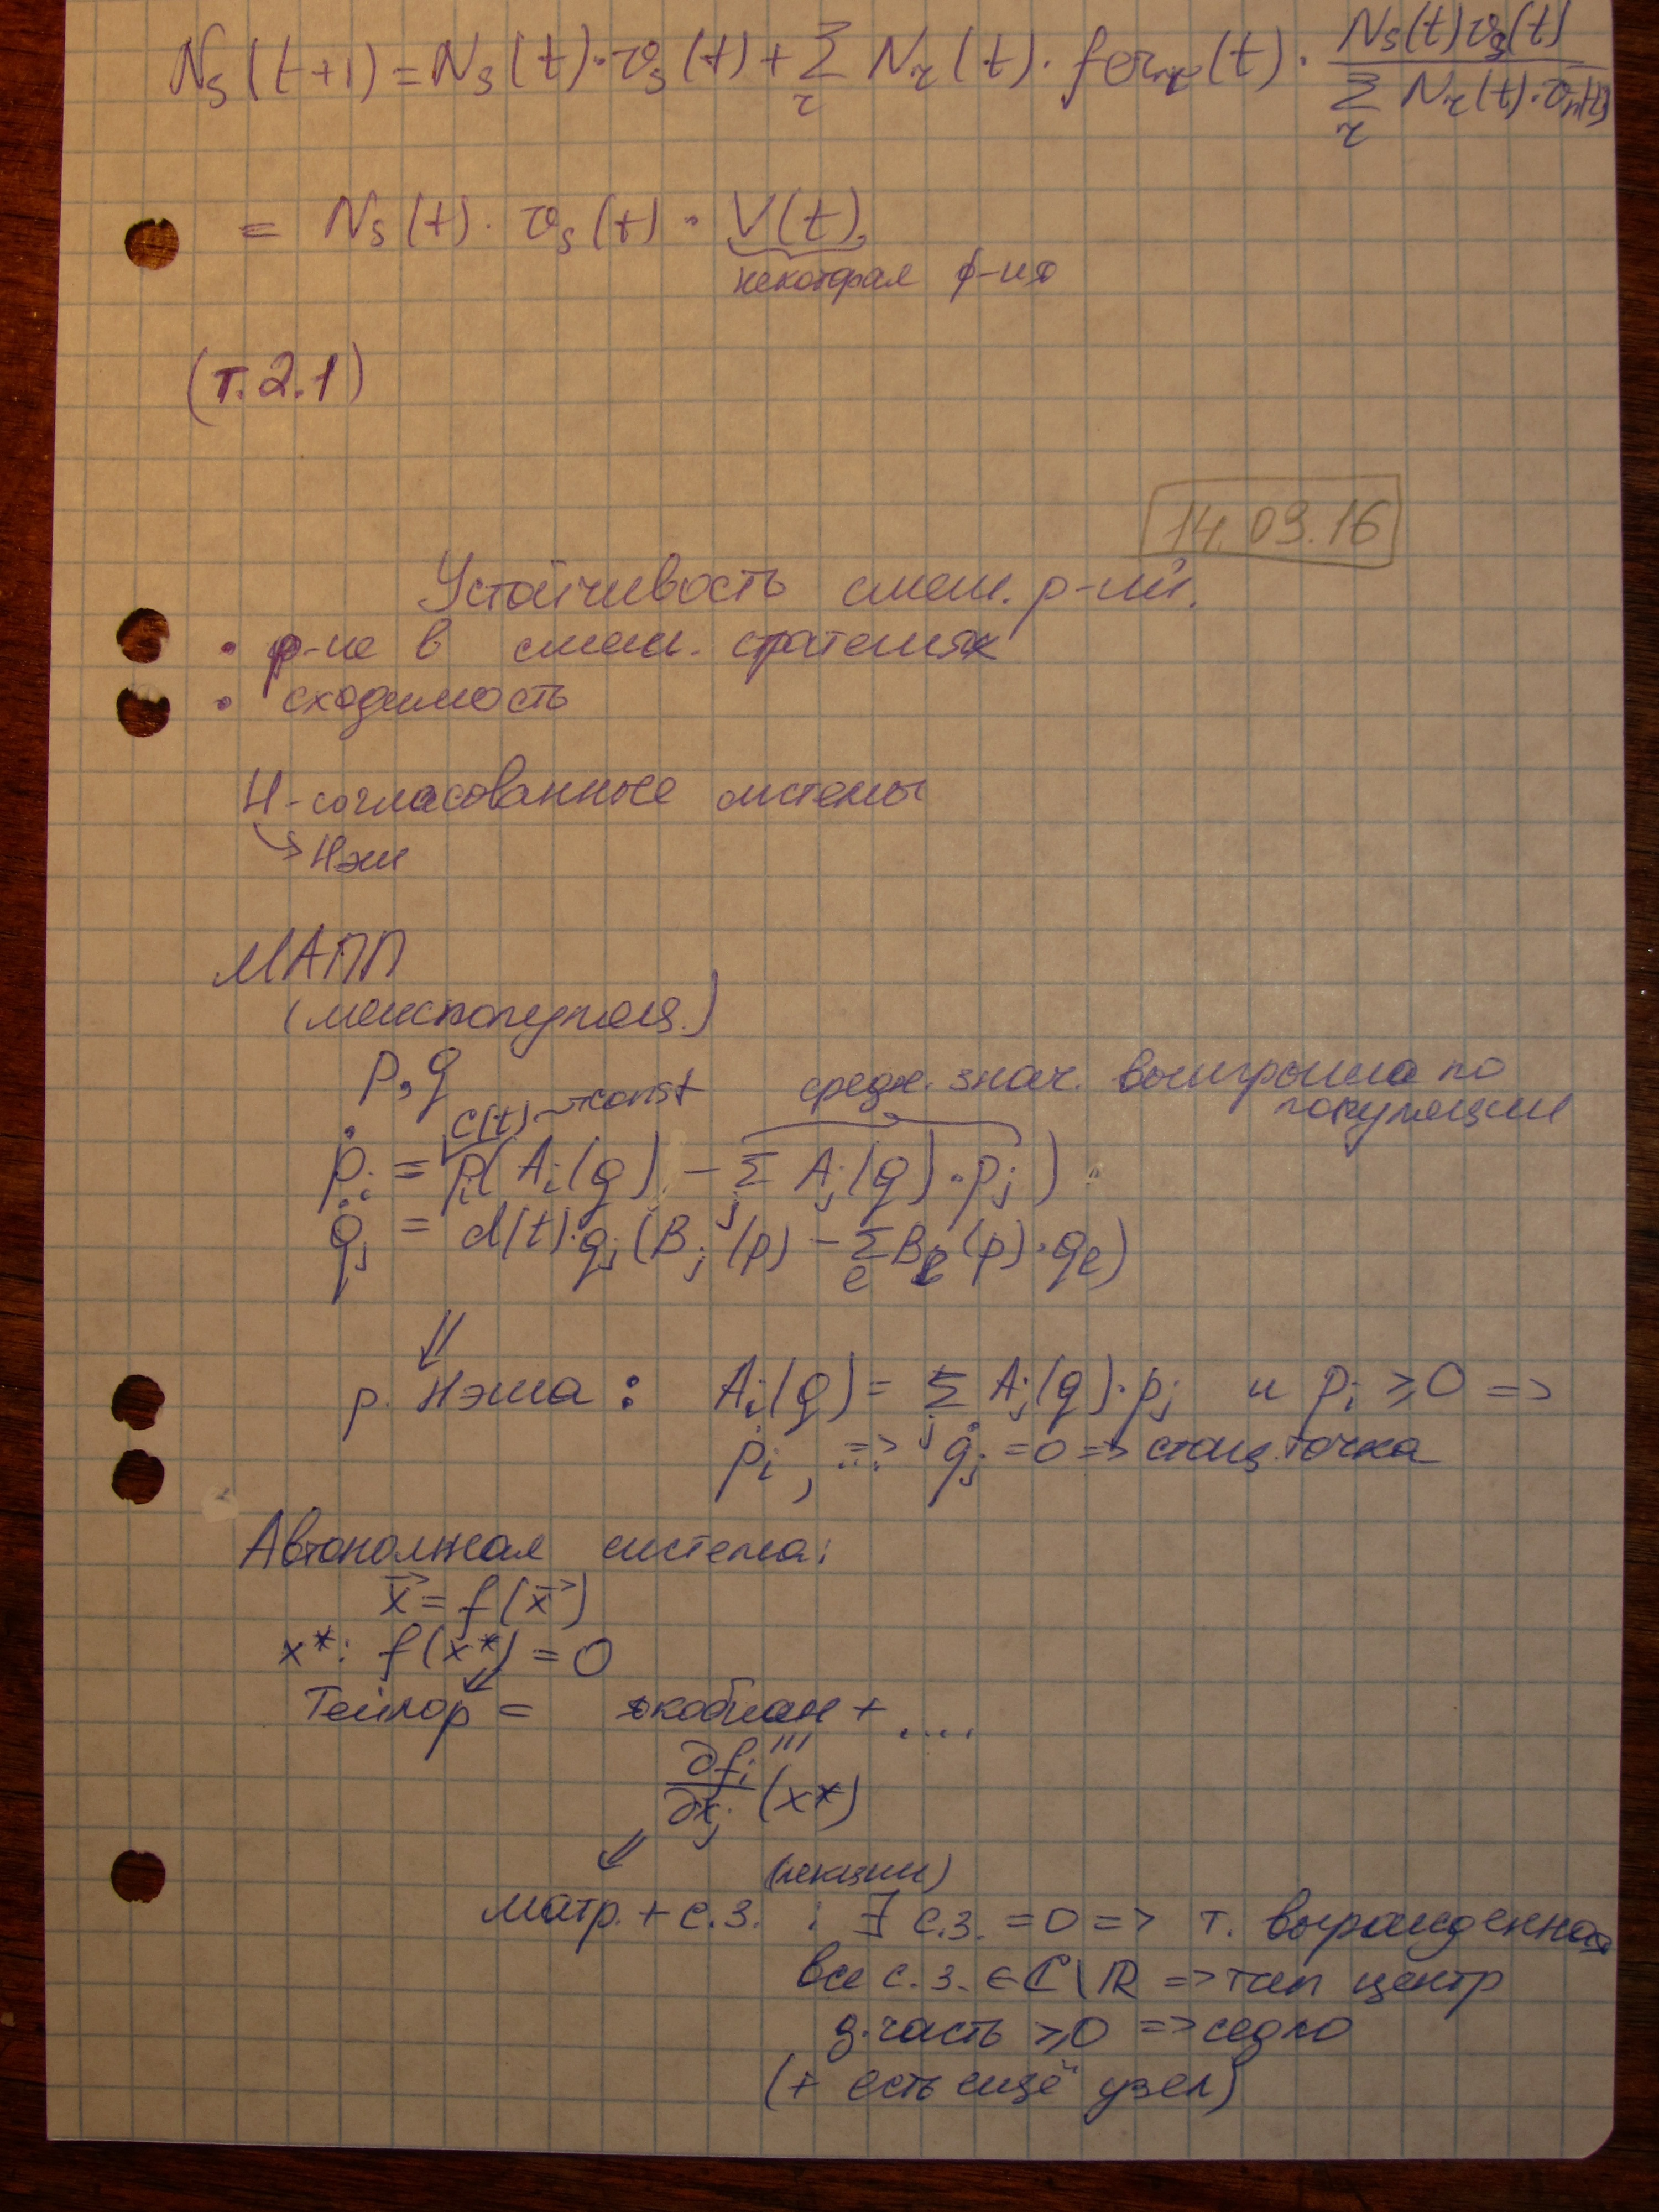 N_s(t+1) = N_s(t)·v_s(t) + Σ_r N_r(t)·fer_r(t)· N_s(t)v_s(t) / Σ_r N_r(t)·v_r(t)
= N_s(t)· v_s(t) · V(t)
некоторая ф-ия
(т.2.1)
14.03.16
Устойчивость смеш. р-ий.
• р-ие в смеш. стратегиях
• сходимость
Н-согласованные системы
↳ Нэш
МАПП
(межпопуляц.)
p, q
c(t) ~ const средн. знач. выигрыша по
популяции
ṗ_i = p_i( A_i(q) - Σ_j A_j(q)·p_j )
q̇_j = d(t)·q_j (B_j(p) - Σ_e B_e(p)·q_e)
⇓
р. Нэша : A_i(q) = Σ_j A_j(q)·p_j и p_i ≥ 0 =>
ṗ_i, => q̇_j = 0 => стац. точка
Автономная система:
x⃗ = f(x⃗)
x*: f(x*) = 0
⇓
Тейлор = якобиан + ....
∂f_i/∂x_j (x*)
⇓ (лекции)
матр. + с.з. : ∃ с.з. = 0 => т. вырожденная
все с.з. ∈ ℂ\ℝ => тип центр
д.часть ≥0 => седло
(+ есть ещё узел)